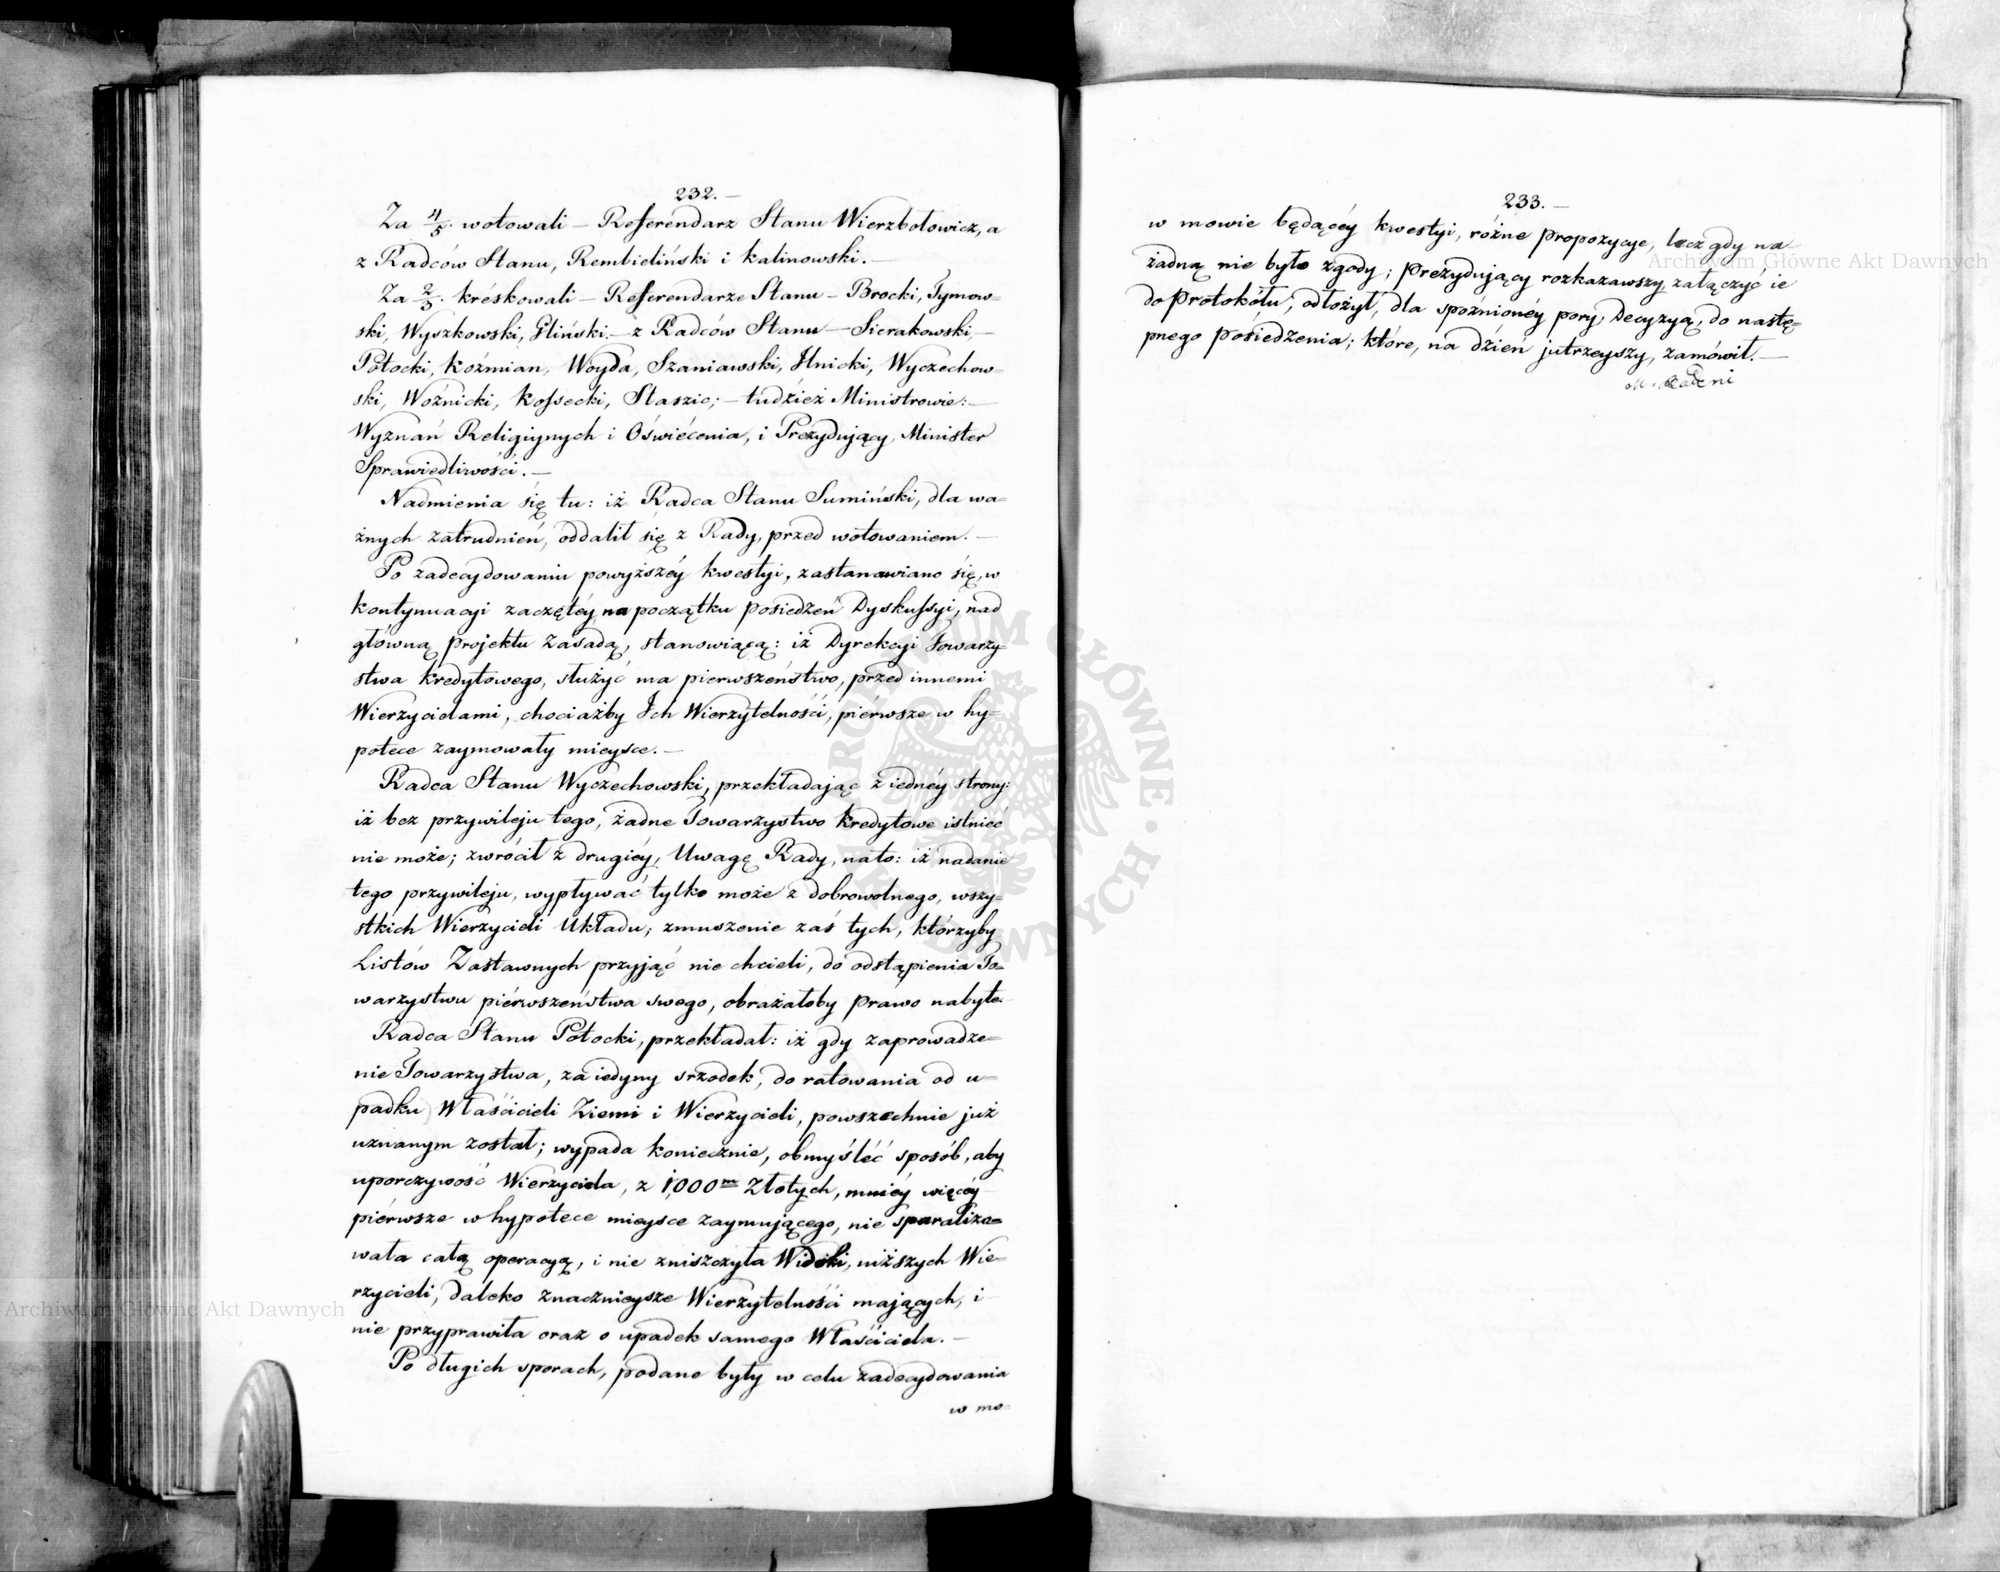 232.—
Za 4/5. wotowali — Referendarz Stanu Wierzbołowicz, a
z Radców Stanu, Rembieliński i Kalinowski.—
Za 2/3. kréskowali — Referendarze Stanu — Brocki, Tymow=
ski, Wyszkowski, Gliński.— z Radców Stanu — Sierakowski,—
Potocki, Koźmian, Woyda, Szaniawski, Ilnicki, Wyczechow=
ski, Woźnicki, Kossecki, Staszic;— tudzież Ministrowie:—
Wyznań Religiynych i Oświécenia, i Prezydujący, Minister
Sprawiedliwości.—
Nadmienia się tu: iż Radca Stanu Sumiński, dla wa=
żnych zatrudnień, oddalił się z Rady, przed wotowaniem.—
Po zadecydowaniu powyższéy kwestyi, zastanawiano się, w
kontynuacyi zaczętéy na początku posiedzeń Dyskussyi, nad
główną projektu zasadą, stanowiącą: iż Dyrekcyi Towarzy=
stwa Kredytowego, służyć ma pierwszeństwo, przed innemi
Wierzycielami, chociażby Ich Wierzytelności, piérwsze w hy=
potece zaymowały mieysce.—
Radca Stanu Wyczechowski, przekładając z iednéy strony:
iż bez przywileju tego, żadne Towarzystwo Kredytowe istnieć
nie może; zwrócił z drugiéy, Uwagę Rady, na to: iż nadanie
tego przywileju, wypływać tylko może z dobrowolnego, wszy=
stkich Wierzycieli Układu; zmuszenie zaś tych, którzyby
Listów Zastawnych przyjąć nie chcieli, do odstąpienia To=
warzystwu piérwszeństwa swego, obrażałoby prawo nabyte.
Radca Stanu Potocki, przekładał: iż gdy zaprowadze=
nie Towarzystwa, za iedyny srzodek, do ratowania od u=
padku Właścicieli Ziemi i Wierzycieli, powszechnie już
uznanym został; wypada koniecznie, obmyśléć sposób, aby
uporczywość Wierzyciela, z 1,000m Złotych, mniéy więcéy
piérwsze w hypotece mieysce zaymującego, nie sparaliżo=
wała całą operacyą, i nie zniszczyła Widoki, niższych Wie=
rzycieli, daleko znacznieysze Wierzytelności mających, i
nie przyprawiła oraz o upadek samego Właściciela.—
Po długich sporach, podane były w celu zadecydowania
w mo=
233.—
w mowie będącéy kwestyi, różne propozycye, lecz gdy na
żadną nie było zgody; Prezydujący rozkazawszy załączyć ie
do Protokółu, odłożył, dla spóźnionéy pory, Decyzyą, do nastę=
pnego posiedzenia; które, na dzień jutrzeyszy, zamówił.—
M. Badeni
Archiwum Główne Akt Dawnych
Archiwum Główne Akt Dawnych
ARCHIWUM GŁÓWNE AKT DAWNYCH